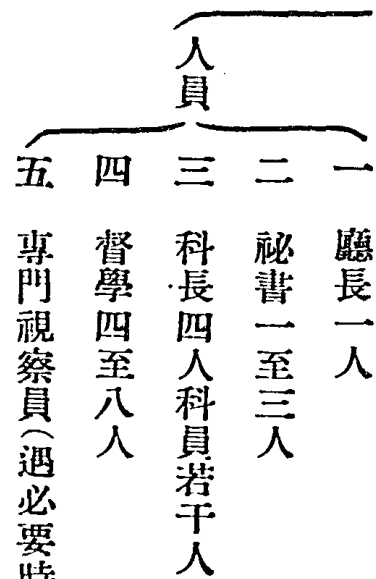 人員
一 廳長一人
二 祕書一至三人
三 科長四人科員若干人
四 督學四至八人
五 專門視察員(遇必要時